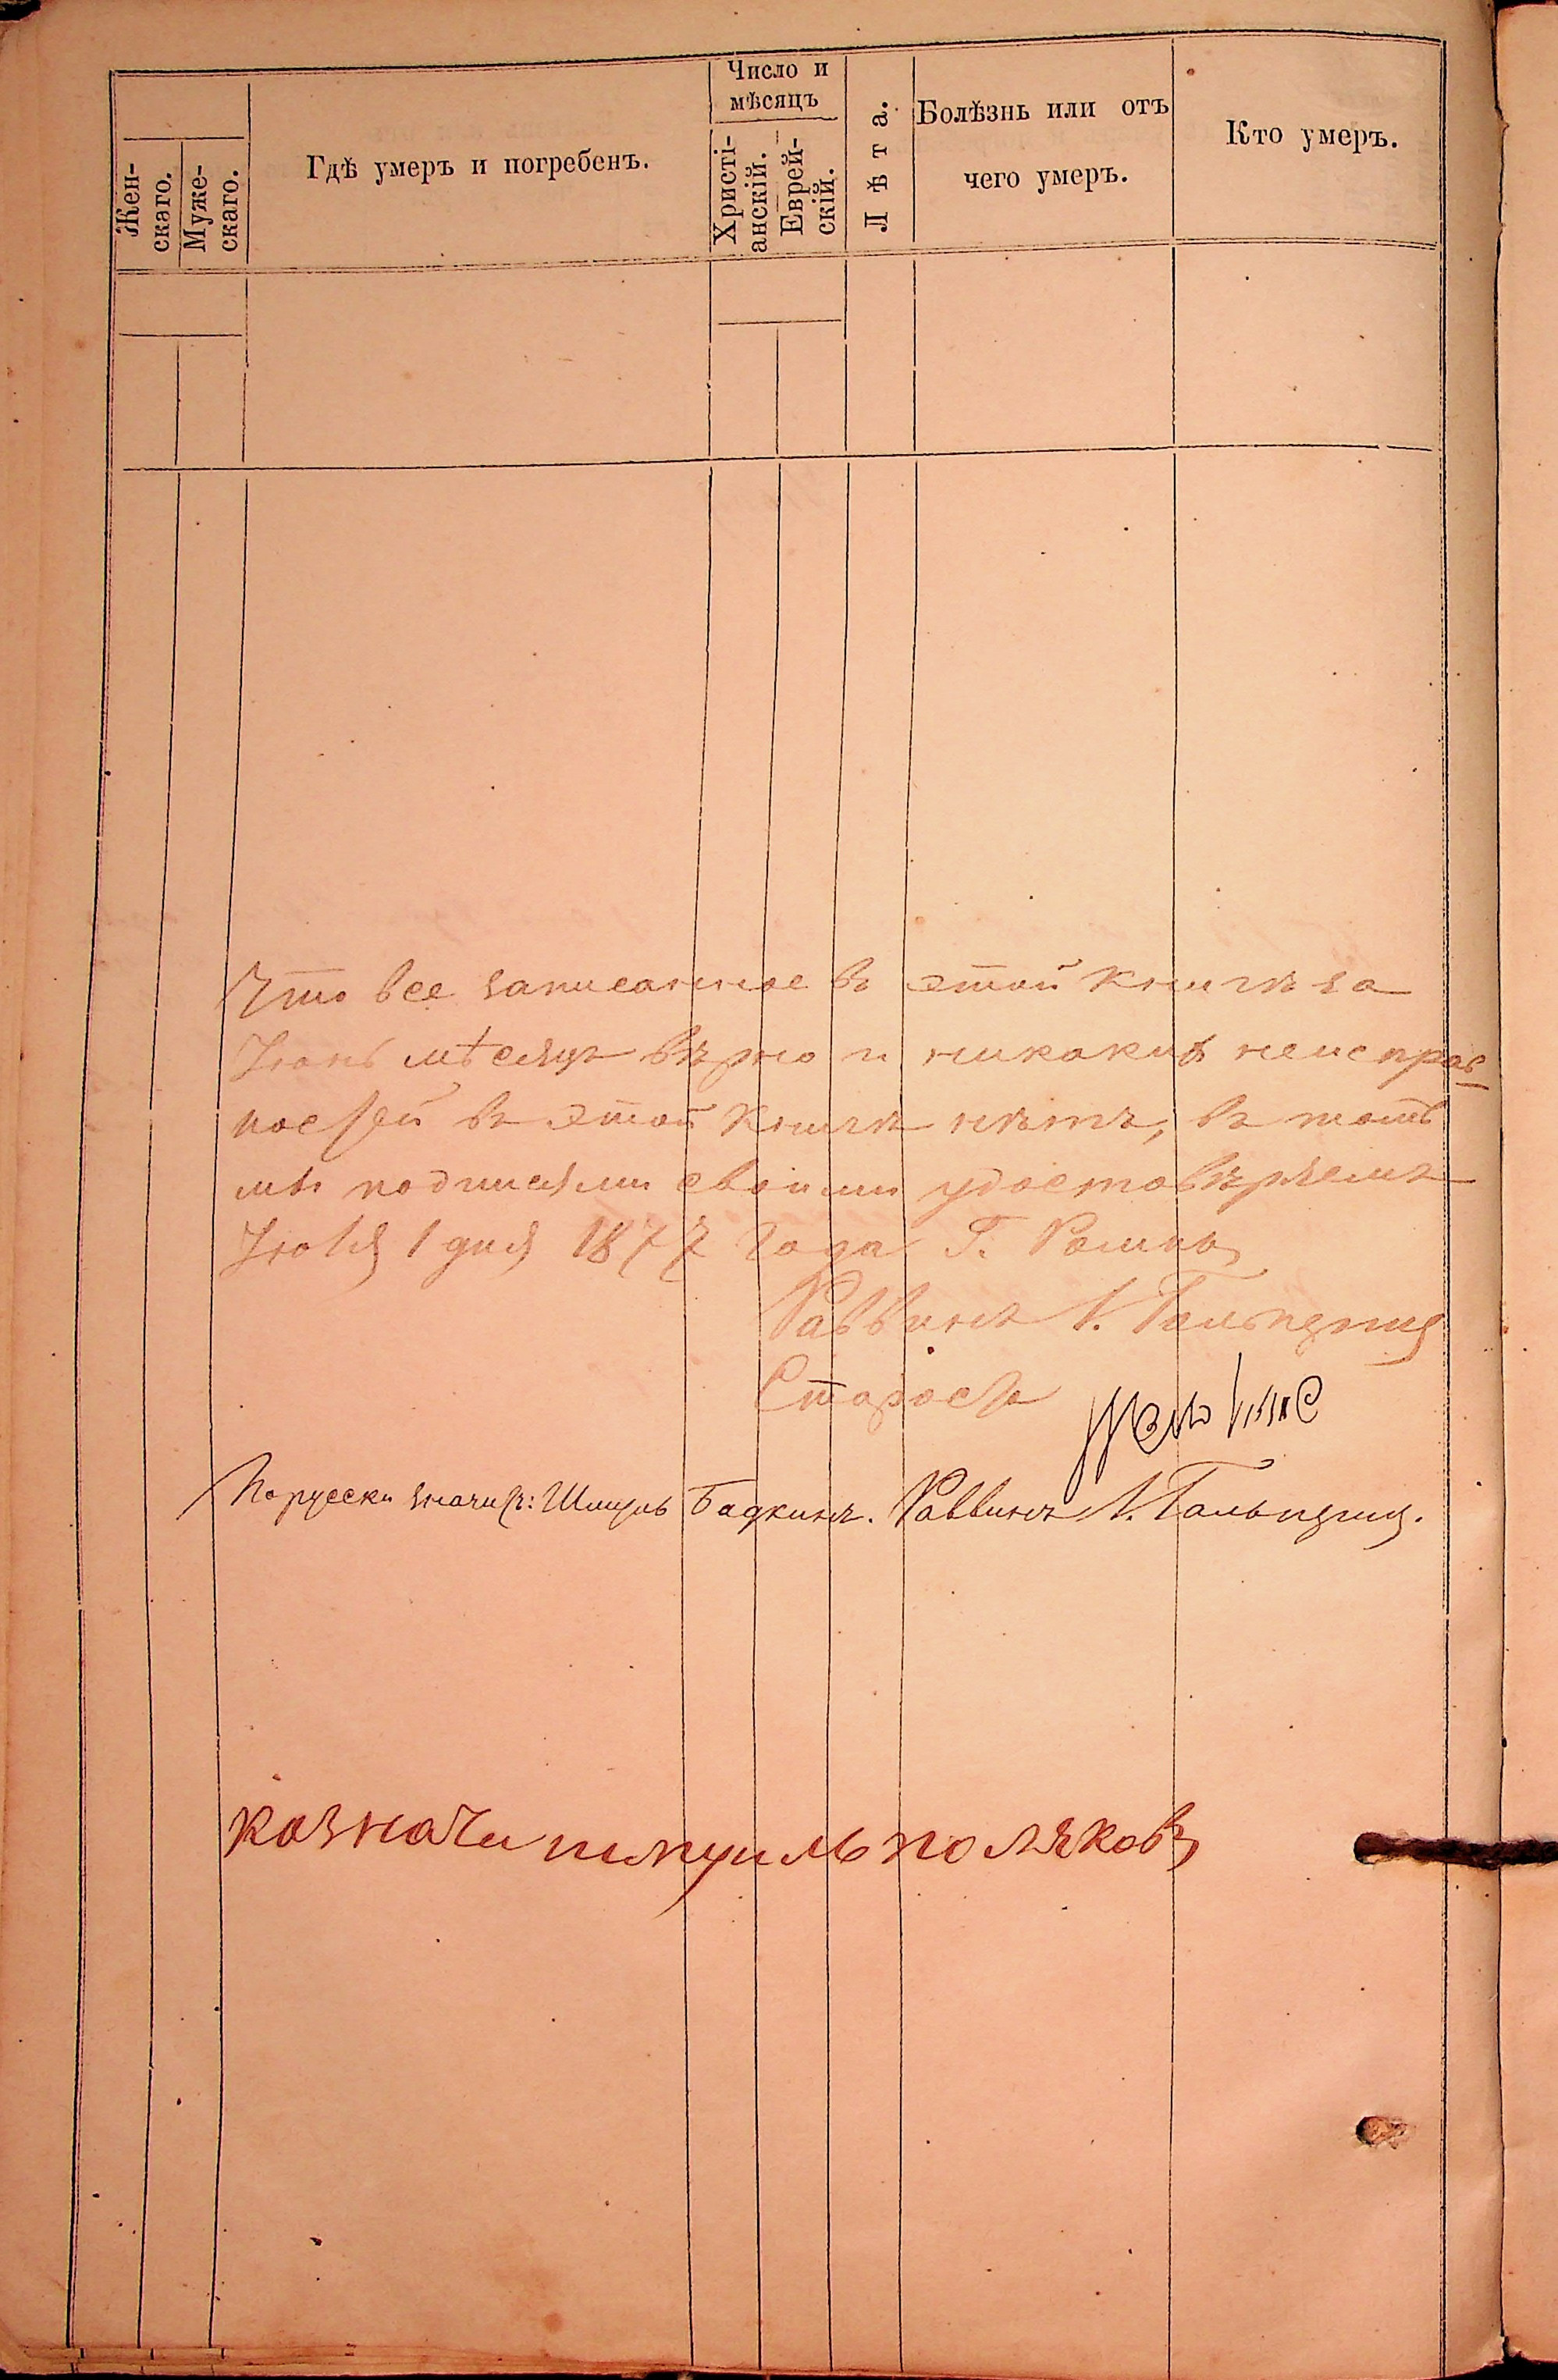 Жен-
скаго.
Муже-
скаго.
Гдѣ умеръ и погребенъ.
Число и
мѣсяцъ
Христі-
анскій.
Еврей-
скій.
Лѣта.
Болѣзнь или отъ
чего умеръ.
Кто умеръ.
Что все записанное въ этой книгѣ за
Іюнь мѣсяцъ вѣрно и никакихъ неисправ-
ностей въ этой книгѣ нѣтъ, въ томъ
мы подписями своими удостовѣряемъ
Іюля 1 дня 1877 года Г. Ромны
Раввинъ Гальперинъ
Староста
По русски значитъ: Шмуль Раввинъ Гальперинъ.
казначи шмуиль поляковъ